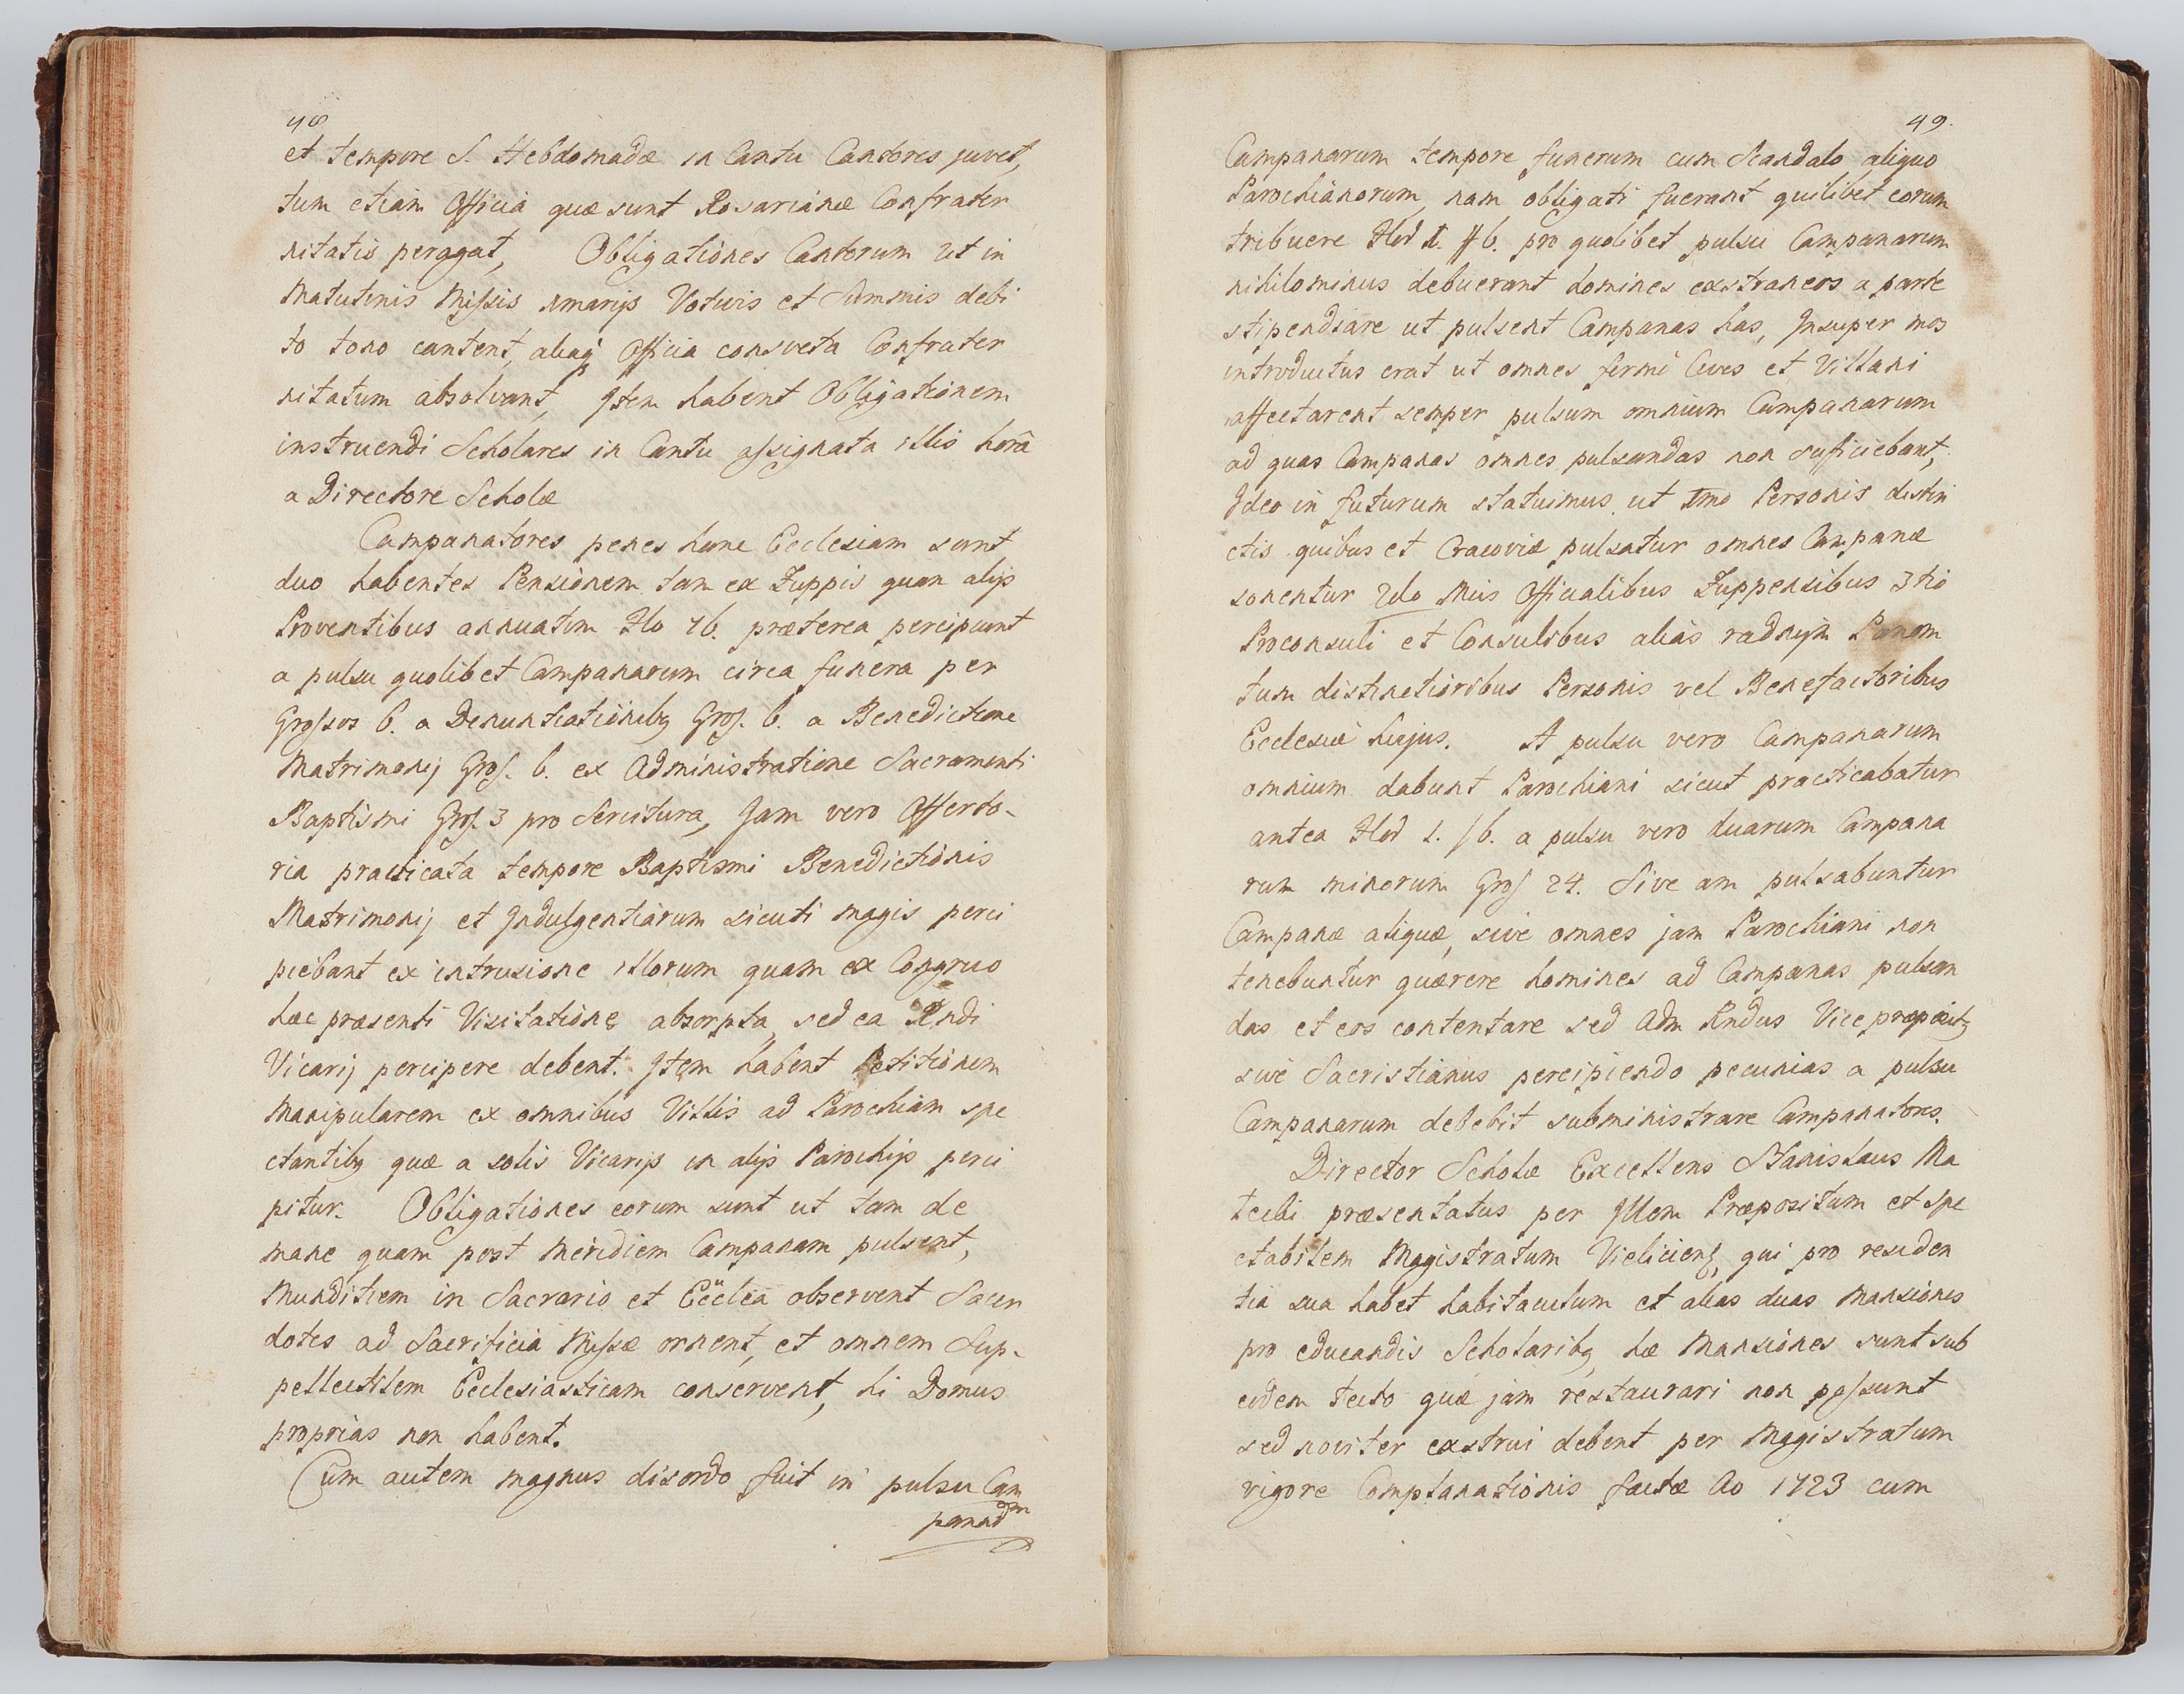 48
et tempore S. Hebdomadæ in Cantu Cantores juvet,
tum etiam Officia quæ sunt Rosarianæ Confrater
nitatis peragat, Obligationes Cantorum ut in
Matutinis Missis Votivis et Summis debi
to tono cantent, aliaq; Officia consveta Confrater
nitatum absolvant, Item habent Obligationem
instruendi Scholares in Cantu assignata illis horâ
a Directore Scholæ
Campanatores penes hanc Ecclesiam sunt
duo habentes Pensionem tam ex Zuppis quam alijs
Proventibus annuatim præterea percipiunt
a pulsu quolibet Campanarum circa funera per
Grossos 6. a Denuntiationibg Gros. 6. a Benedictione
Matrimonij Gros. 6. ex Administratione Sacramenti
Baptismi Gros. 3 pro Servitura, Jam vero Offerto-
ria practicata tempore Baptismi Benedictionis
Matrimonij et Indulgentiarum sicuti magis perci
piebant ex intrusione illorum quam ex Congruo
hæc præsenti Visitatione absorpta, sed ea Rndi
Vicarij percipere debent. Item habent Petitionem
Manipularem ex omnibus Villis ad Parochiam spe
ctantibg quæ a solis Vicarijs in alijs Parochijs perci
pitur. Obligationes eorum sunt ut tam de
mane quam post Meridiem Campanam pulsent,
Munditiem in Sacrario et Ecclia observent Sacer
dotes ad Sacrificia Missæ ornent, et omnem Sup-
pellectilem Ecclesiasticam conservent, hi Domus
proprias non habent.
Cum autem magnus disordo fuit in pulsu Cam
49.
Campanarum tempore funerum cum Scandalo aliquo
Parochianorum, nam obligati fuerant quilibet eorum
tribuere pro quolibet pulsu Campanarum
nihilominus debuerant homines exstraneos a parte
stipendiare ut pulsent Campanas has, Insuper mos
introductus erat ut omnes fermè Cives et Villani
affectarent semper pulsum omnium Campanarum
ad quas Campanas omnes pulsandas non suficiebant,
Ideo in futurum statuimus. ut 1mo Personis distin
ctis quibus et Cracoviæ pulsatur omnes Campanæ
sonentur 2do Officialibus Zuppensibus 3tio
Proconsuli et Consulibus alias radnym Panom
tum distinctioribus Personis vel Benefactoribus
Ecclesiæ hujus. A pulsu vero Campanarum
omnium dabunt Parochiani sicut practicabatur
antea a pulsu vero duarum Campana
rum minorum Gros 24. Sive am pulsabuntur
Campanæ aliquæ, sive omnes jam Parochiani non
tenebuntur quærere homines ad Campanas pulsan
das et eos contentare sed Adm Rndus Vice præposit9
sive Sacristianus percipiendo pecunias a pulsu
Campanarum debebit subministrare Campanatores.
Director Scholæ Excellens Stanislaus Ma
tecki præsentatus per Illem Præpositum et spe
ctabilem Magistratum Vieliciens, qui pro residen
tia sua habet habitaculum et alias duas mansiones
pro educandis Scholaribg, hæ Mansiones sunt sub
eodem tecto quæ jam restaurari non possunt
sed noviter exstrui debent per Magistratum
vigore Complanationis factæ Ao 1723 cum